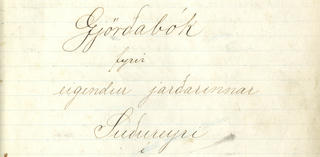 Gjörðabók
fyrir
eigendur jarðarinnar
Suðureyri
í